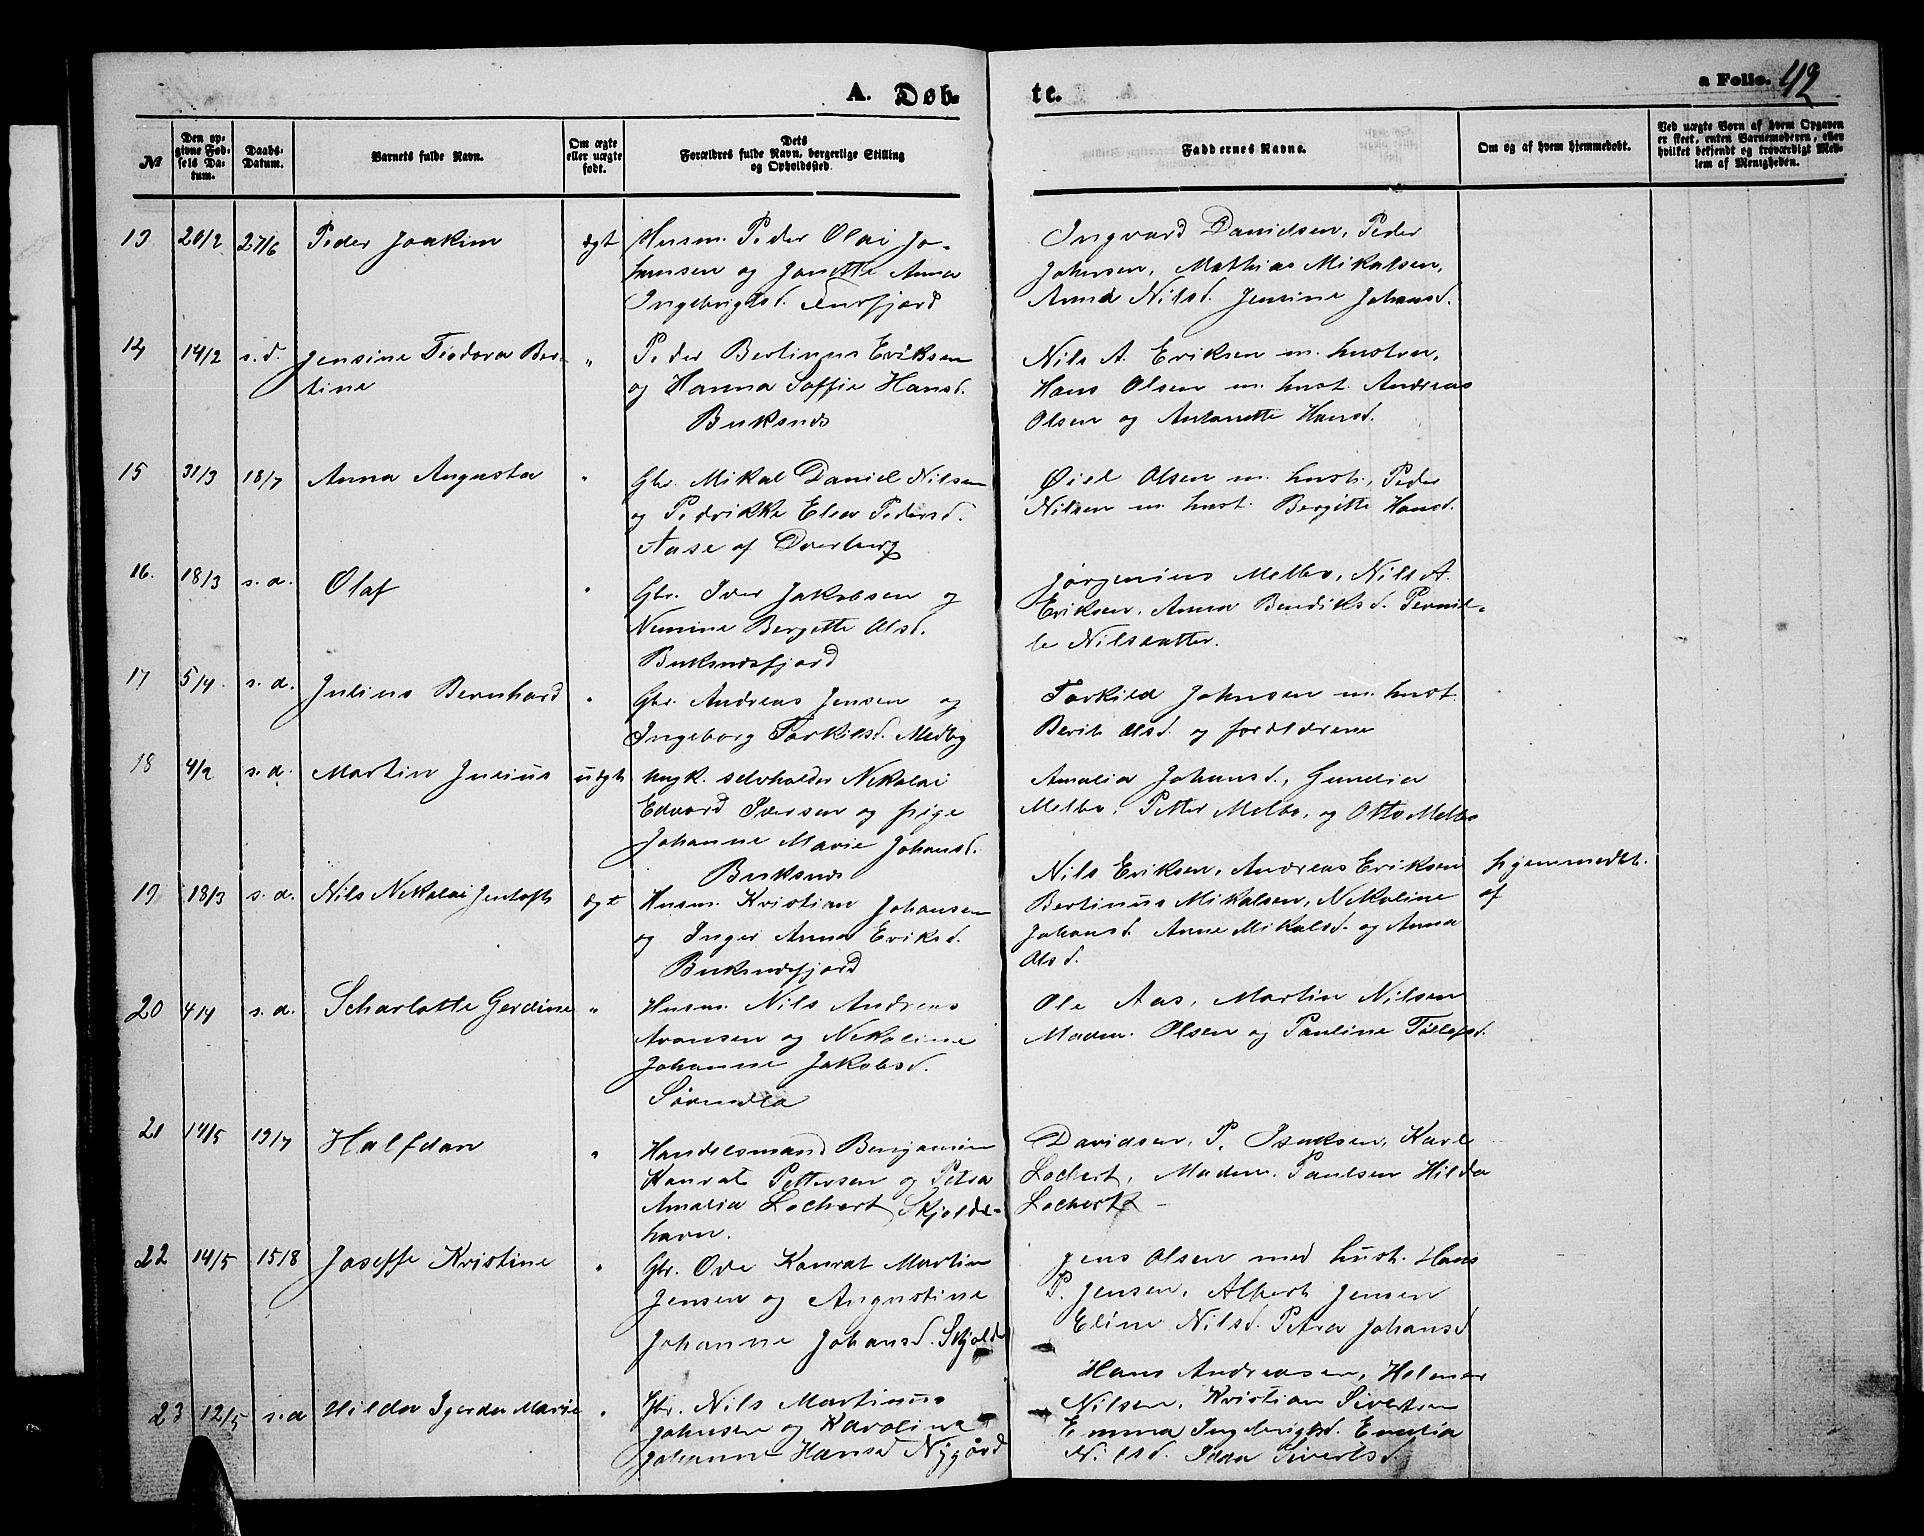 A. Døb-
te.
a Folio. 42
No
Den op-
givne Fød-
sels Da-
tum.
Daabs-
Datum.
Barnets fulde Navn.
Om ægte
eller uægte
født.
Dets
Forældres fulde Navn, borgerlige Stilling
og Opholdssted.
Faddernes Navne.
Om og af hvem hjemmedøbt.
Ved uægte Børn af hvem Opgaven
er skeet, enten Barnemoderen, eller
hvilket bekjendt og troværdigt Med-
lem af Menigheden.
13 20/2 27/6 Peder Joakim ægt
Husm. Peder Olai Jo-
hansen og Janette Anna
Ingebrigtsd.
Ingvard Danielsen, Peder
Johnsen, Mathias Mikalsen,
Anna Nilsd. Jensine Johansd.
14 14/2 s. d. Jensine Teodora Ber-
tine "
Peder Bertinus Eriksen
og Hanna Soffie Hansd.
Buksnes
Nils A. Eriksen m. hustru,
Hans Olsen m. hust. Andreas
Olsen og Antonette Hansd.
15 31/3 18/7 Anna Augusta "
Gbr. Mikal Daniel Nilsen
og Pedrikke Elea Pedersd.
Aase af Dverberg
Øiel Olsen m. hust., Peder
Nilsen m. hust. Bergitte Hansd.
16. 18/3 s. d. Olaf "
Gbr. Iver Jakobsen og
Nemine Bergette Olsd.
Buksnesfjord
Jørgenius Melbo, Nils A.
Eriksen, Anna Bendiksd. Pernil-
le Nilsdatter.
17 5/4 s. d. Julius Bernhard "
Gbr. Andreas Jensen og
Ingeborg Torkilsd. Medby
Torkild Johnsen m. hust
Berit Olsd. og forældrene
18 4/2 s. d. Martin Julius uægte
Ungk. selvholder Nekolai
Edvard Iversen og pige
Johanne Marie Johansd.
Buksnes
Amalia Johansd., Gunelia
Melbo, Petter Melbo, og Otto Melbo
19 18/3 s. d. Nils Nekolai Jentoft ægt
Husm. Kristian Johansen
og Inger Anna Eriksd.
Buksnesfjord
Nils Eriksen, Andreas Eriksen
Bertinus Mikalsen, Nekoline
Johansd. Anne Mikalsd. og Anna
Olsd.
hjemmedøbt.
af
20 4/4 s. d. Scharlotte Gerdine "
Husm. Nils Andreas
Aronsen og Nekoline
Johanne Jakobsd.
Ole Aas, Martin Nilsen
Madm. Olsen og Pauline Tollefsd.
21 14/5 19/7 Halfdan "
Handelsmand Benjamin
Konrat Pettersen og Petra
Amalia Lochert, Skjolde-
havn.
Davidsen, P. Isaksen, Karl
Lochert, Madm. Paulsen Hilda
Lochert -
22 14/5 15/8 Joseffe Kristine "
Gbr. Ove Konrat Martin
Jensen og Augustine
Johanne Johansd. Skjolde
Jens Olsen med hust. Hans
P. Jensen, Albert Jensen
Eline Nilsd. Petra Johansd
23 12/5 s. d Hilda Igerda Marie "
Gbr. Nils Martinus
Johnsen og Karoline
Johanne Hansd Nygård
Hans Andreasen, Helmer
Nilsen, Kristian Sivertsen
Emma Ingebrigtsd. Emelia
Nilsd. Idda Sivertsd.